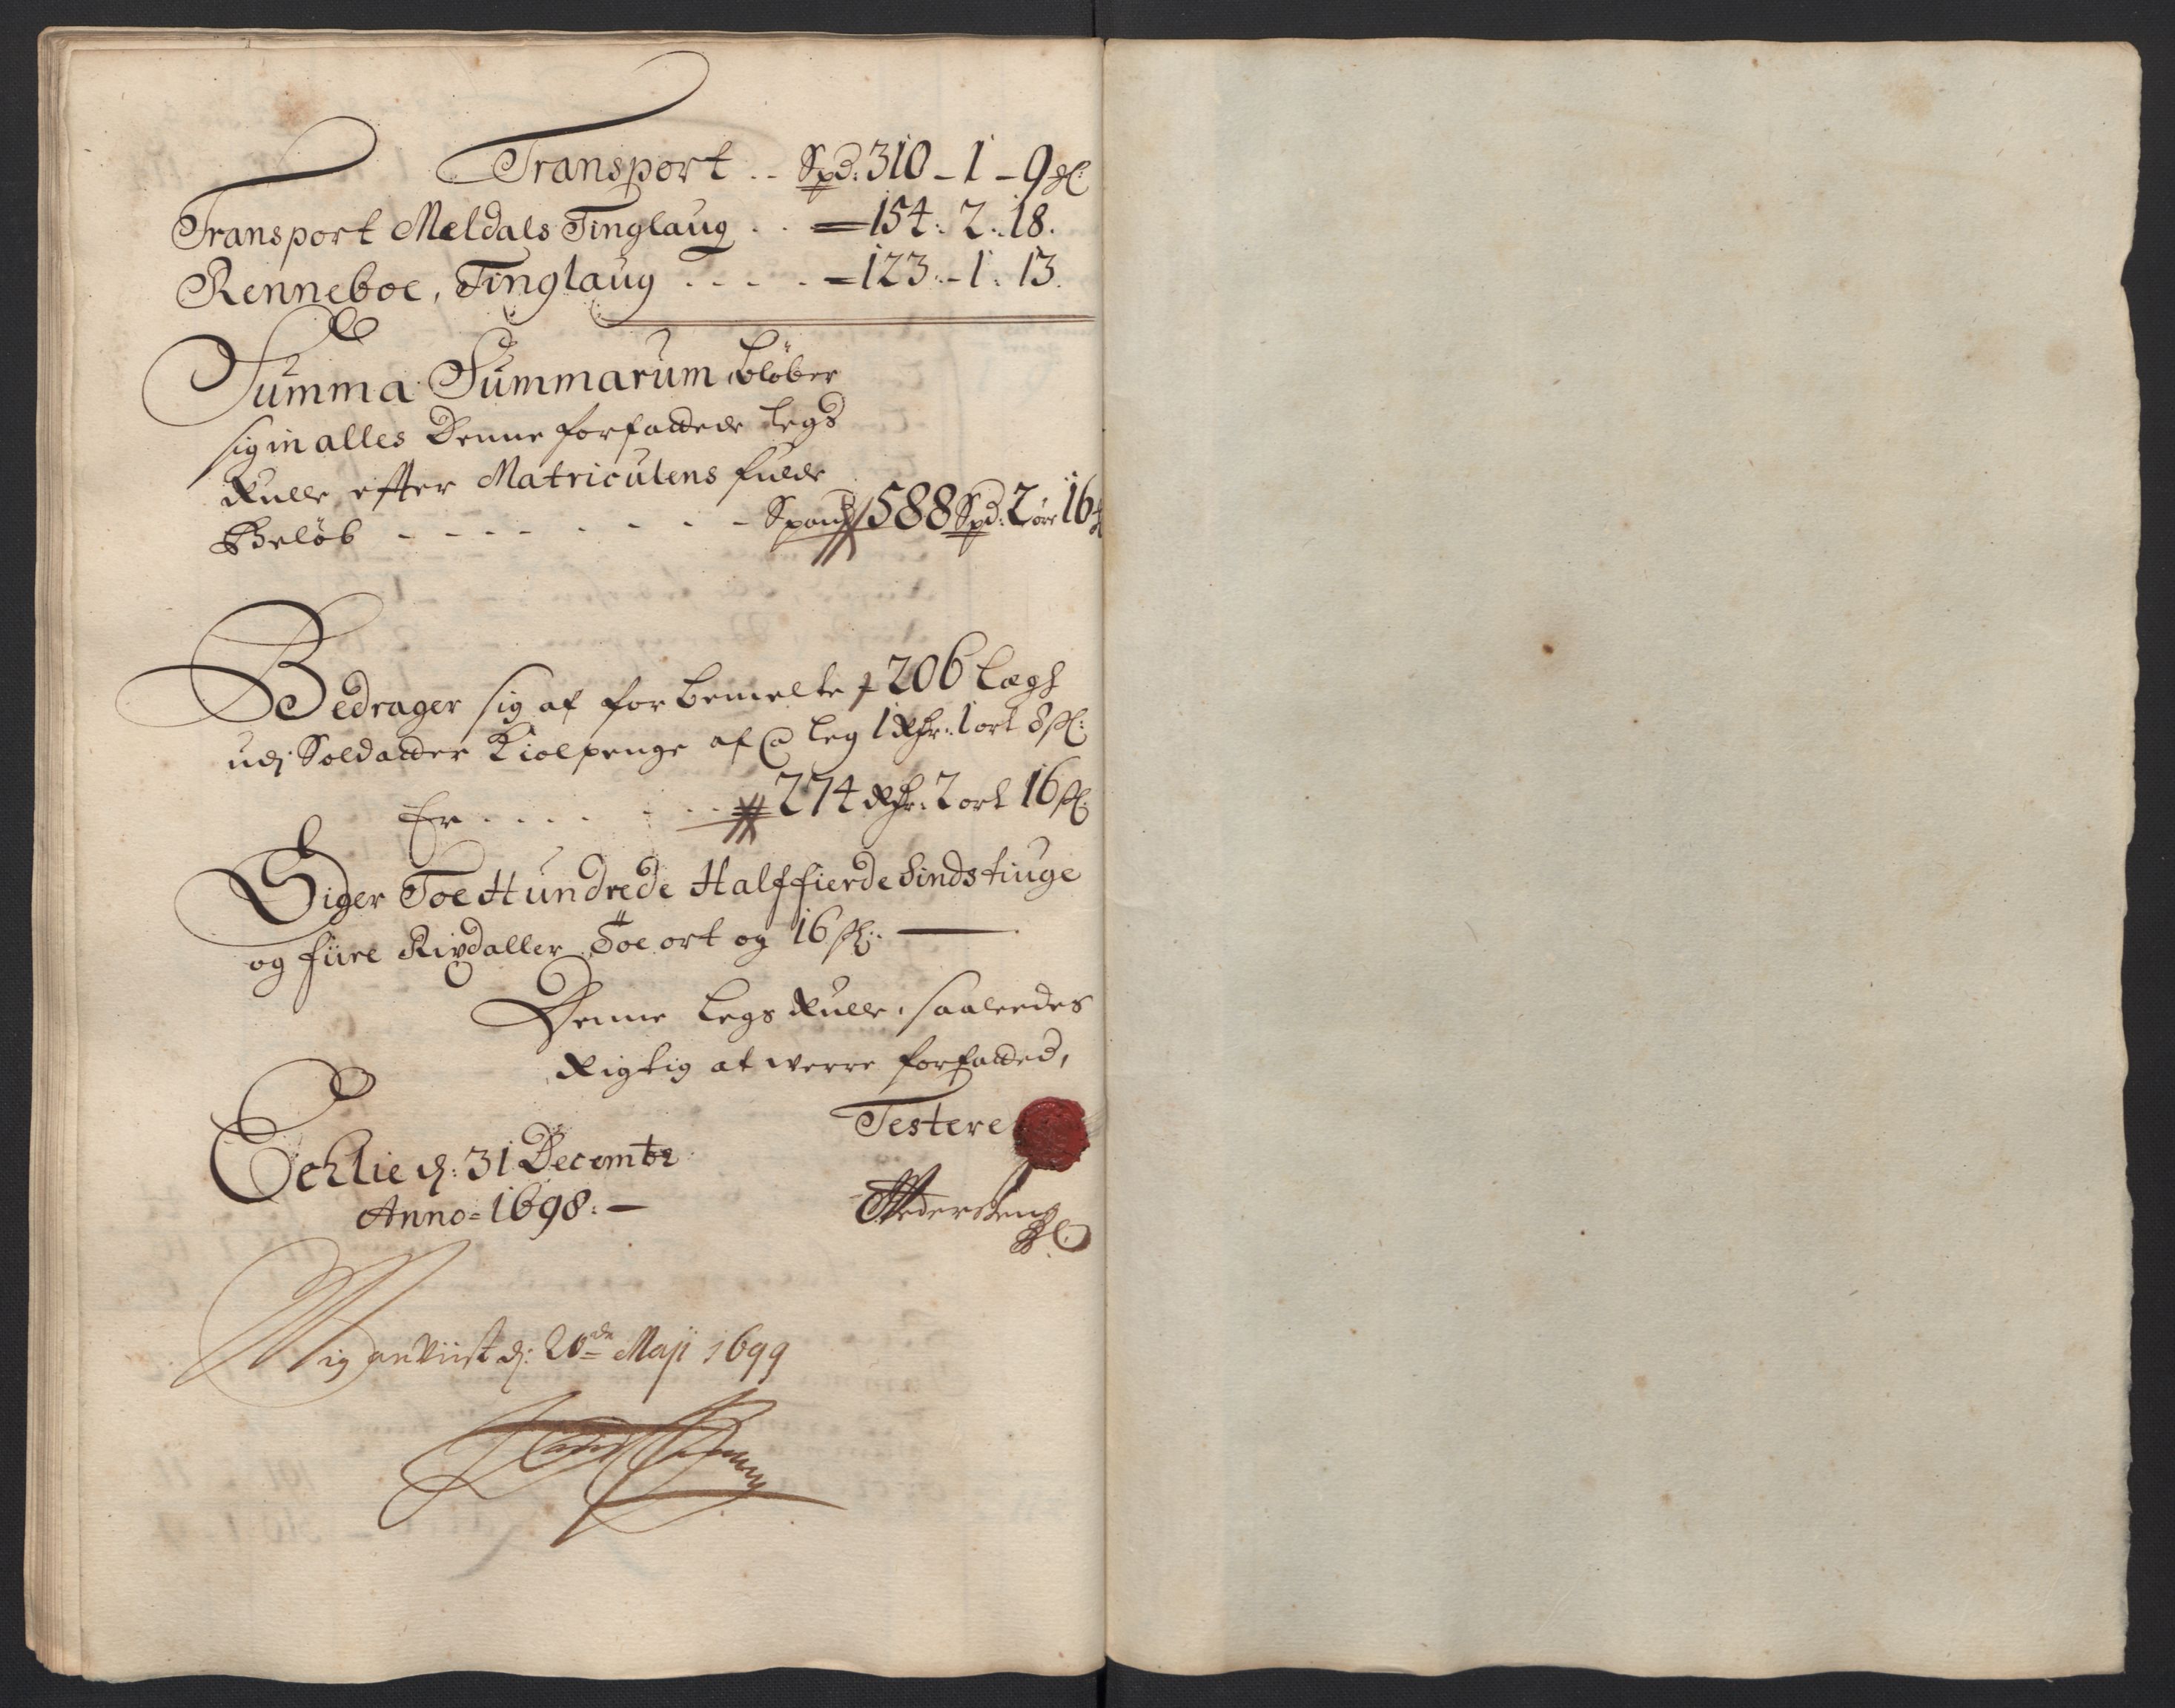 Transport .. Spd: 310 - 1 - 9 ßl:
Transport Meldals Tinglaug . . = 154: 2: 18.
Renneboe, Tinglaug . . . . = 123: - 1: 13.
Summa Summarum, beløber
sig in alles Denne forfattede Legs
Rulle, efter Matriculens fulde
Beløb - - - - - - - - Spand 588 Spd: 2 øre 16
Bedrager sig af forbemelte 206 Lægh
udj Soldatter Kiolpenge af @ Leg 1 Rdr: 1 ort 8 ßl:
Er . . . . . . . 274 Rdr: 2 ort 16 ßl:
Siger Toe Hundrede Halffierdesindstiuge
og fiire Rixdaller, Toe ort og 16 ßl: —
Denne Legs Rulle, saaleedes
Rigtig at werre forfatted,
Testere
Echlie d: 31 Decembr
Anno = 1698: —
Pedersen
Mig anviist d: 20de Maji 1699